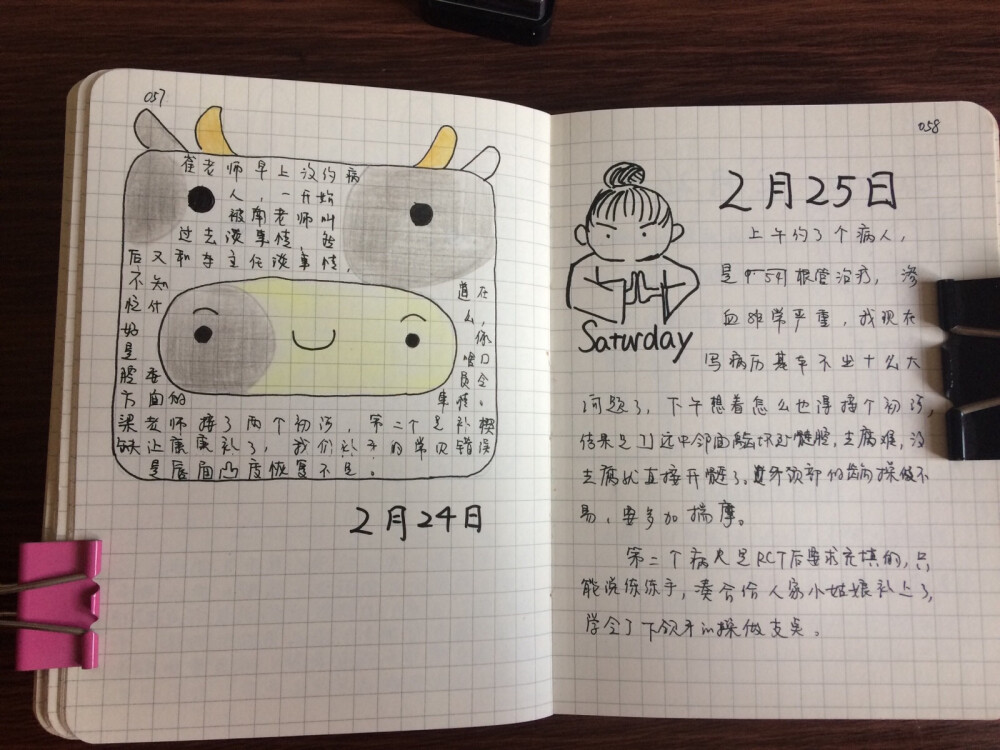 057
崔老师早上没约病
人，一开始
被南老师叫
过去谈事情，然
后又和李主任谈事情，
不知道在
忙什么，
好像
是管口
腔委员会
方面的事情。
梁老师接了两个初诊，第二个是补楔
缺让康康补了，我们补牙的常见错误
是唇面凸度恢复不足。
2月24日
058
2月25日
Saturday
上午约了个病人，
是 根管治疗，渗
血非常严重，我现在
写病历基本不出什么大
问题了，下午想着怎么也得接个初诊，
结果是 远中邻面龋坏到髓腔，去腐难，没
去腐就直接开髓了。牙颈部的龋操做不
易，要多加揣摩。
第二个病人是RCT后要求充填的，只
能说练练手，凑合给人家小姑娘补上了，
学会了下颌牙的操做支点。